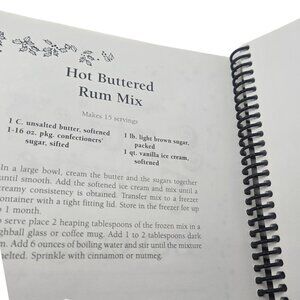 Hot Buttered
Rum Mix
Makes 15 servings
1 C. unsalted butter, softened
1-16 oz. pkg. confectioners'
sugar, sifted
1 lb. light brown sugar,
packed
1 qt. vanilla ice cream,
softened
In a large bowl, cream the butter and the sugars together
until smooth. Add the softened ice cream and mix until a
creamy consistency is obtained. Transfer mix to a freezer
container with a tight fitting lid. Store in the freezer for up
to 1 month.
To serve place 2 heaping tablespoons of the frozen mix in a
highball glass or coffee mug. Add 1 to 2 tablespoons dark
rum. Add 6 ounces of boiling water and stir until the mixture
melted. Sprinkle with cinnamon or nutmeg.